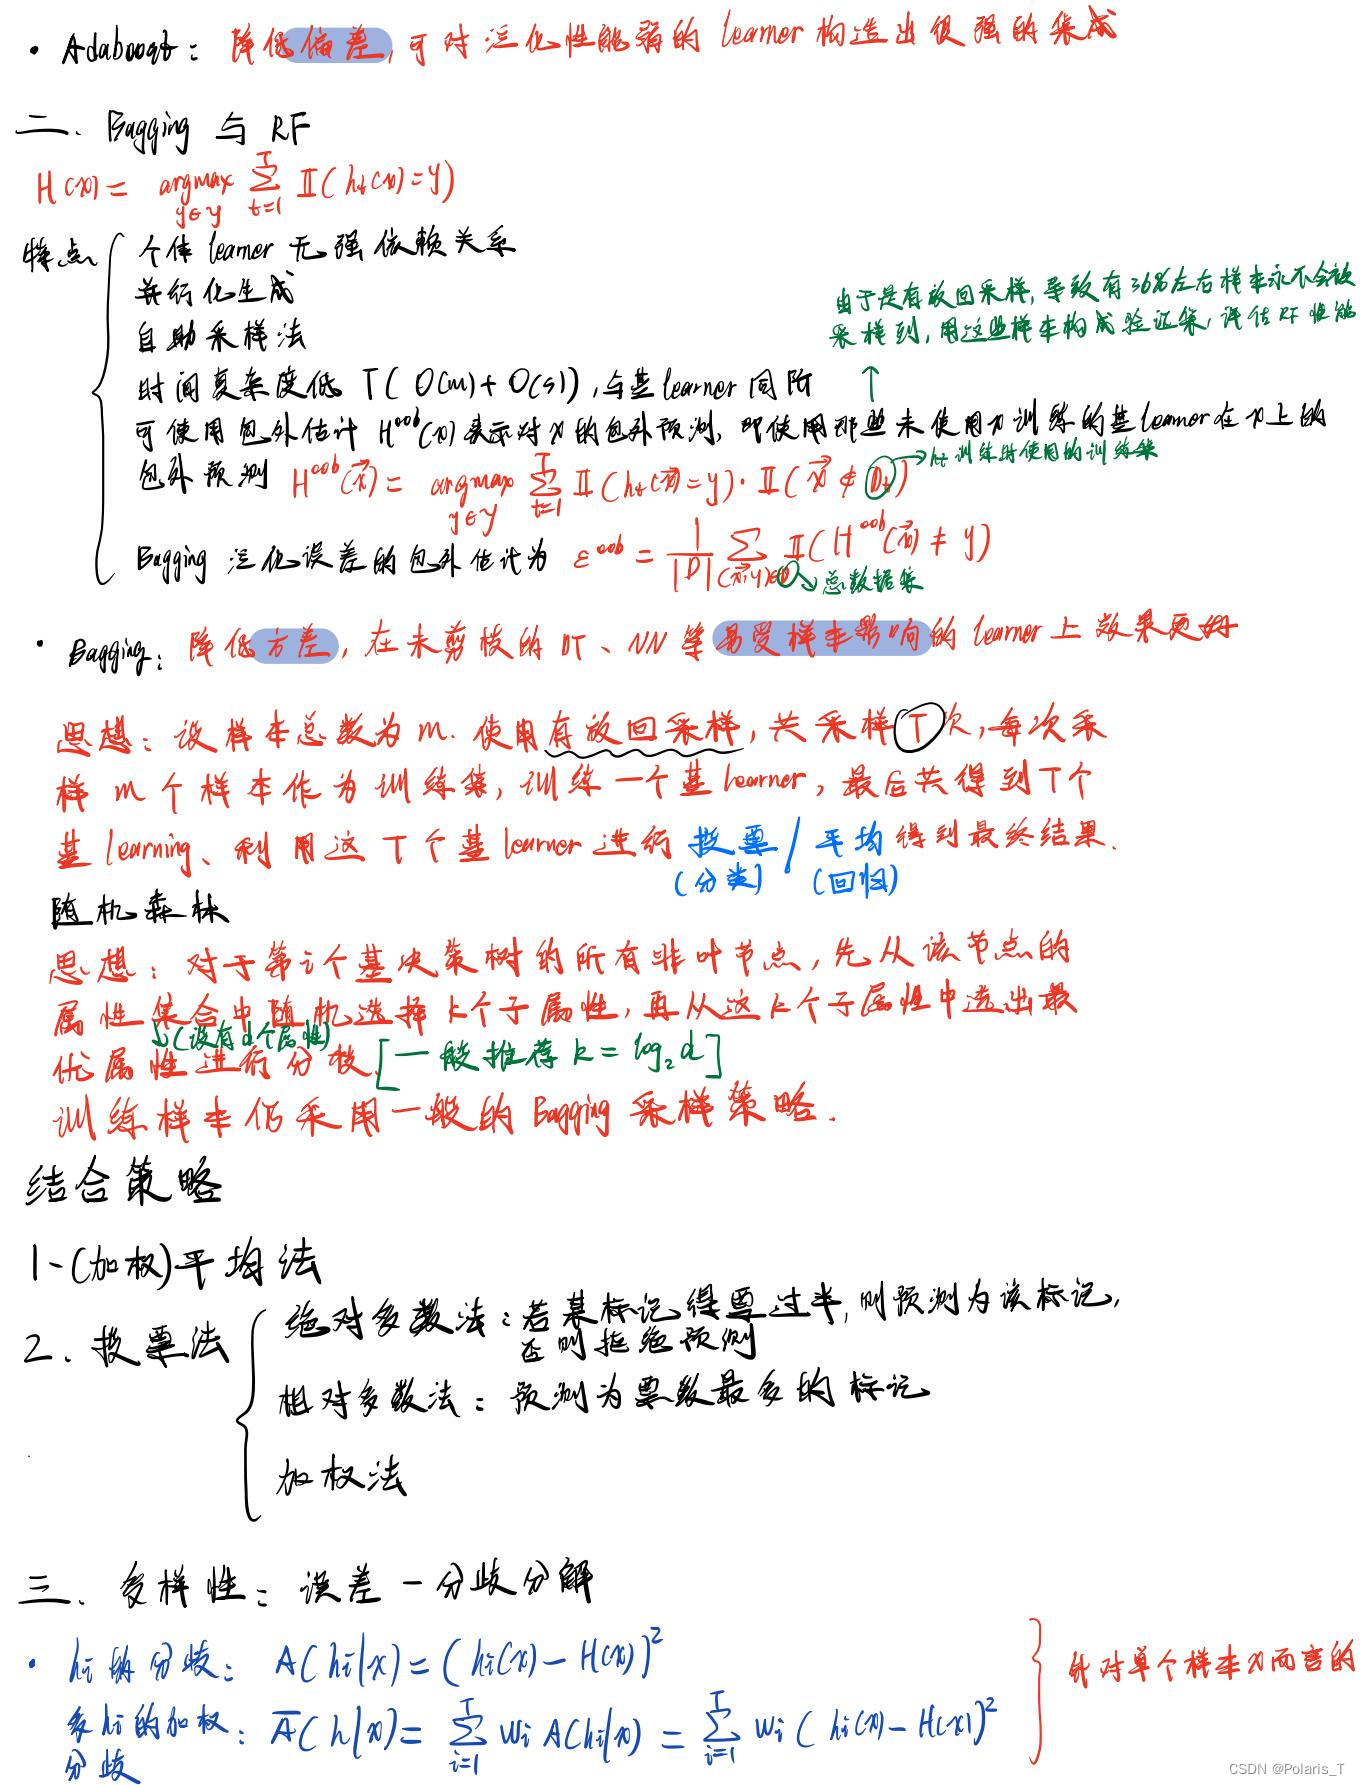 • Adaboost：降低偏差，可对泛化性能弱的 learner 构造出很强的集成
二、Bagging 与 RF
H(x) = argmax_{y∈y} Σ_{t=1}^{T} 𝕀(h_t(x)=y)
特点
个体 learner 无强依赖关系
并行化生成
自助采样法
由于是有放回采样，导致有36%左右样本永不会被
采样到，用这些样本构成验证集，评估 RF 性能
↑
时间复杂度低 T(O(m)+O(s))，与基learner同阶
可使用包外估计 H^{oob}(x)表示对x的包外预测，即使用那些未使用x训练的基learner在x上的
包外预测 H^{oob}(\vec{x}) = argmax_{y∈y} Σ_{t=1}^{T} 𝕀(h_t(\vec{x})=y)·𝕀(\vec{x}∉D_t)
→h_t训练时使用的训练集
Bagging 泛化误差的包外估计为 ε^{oob} = \frac{1}{|D|} Σ_{(\vec{x},y)∈D} 𝕀(H^{oob}(\vec{x})≠y)
→总数据集
• Bagging：降低方差，在未剪枝的 DT、NN 等易受样本影响的 learner 上效果更好
思想：设样本总数为 m. 使用有放回采样，共采样T次，每次采
样 m 个样本作为训练集，训练一个基learner，最后共得到T个
基learning、利用这 T 个基 learner 进行 投票 / 平均 得到最终结果.
(分类) (回归)
随机森林
思想：对于第i个基决策树的所有非叶节点，先从该节点的
属性集合中随机选择 k个子属性，再从这k个子属性中选出最
↓(设有d个属性)
优属性进行分枝. [一般推荐 k = log₂d]
训练样本仍采用一般的 Bagging 采样策略.
结合策略
1-(加权)平均法
2. 投票法
绝对多数法：若某标记得票过半，则预测为该标记，
否则拒绝预测
相对多数法：预测为票数最多的标记
加权法
三、多样性：误差-分歧分解
• hi的分歧：A(hi|x) = (hi(x)-H(x))²
针对单个样本x而言的
多hi的加权
分歧：\bar{A}(h|x) = Σ_{i=1}^{T} wi A(hi|x) = Σ_{i=1}^{T} wi(hi(x)-H(x))²
CSDN @Polaris_T